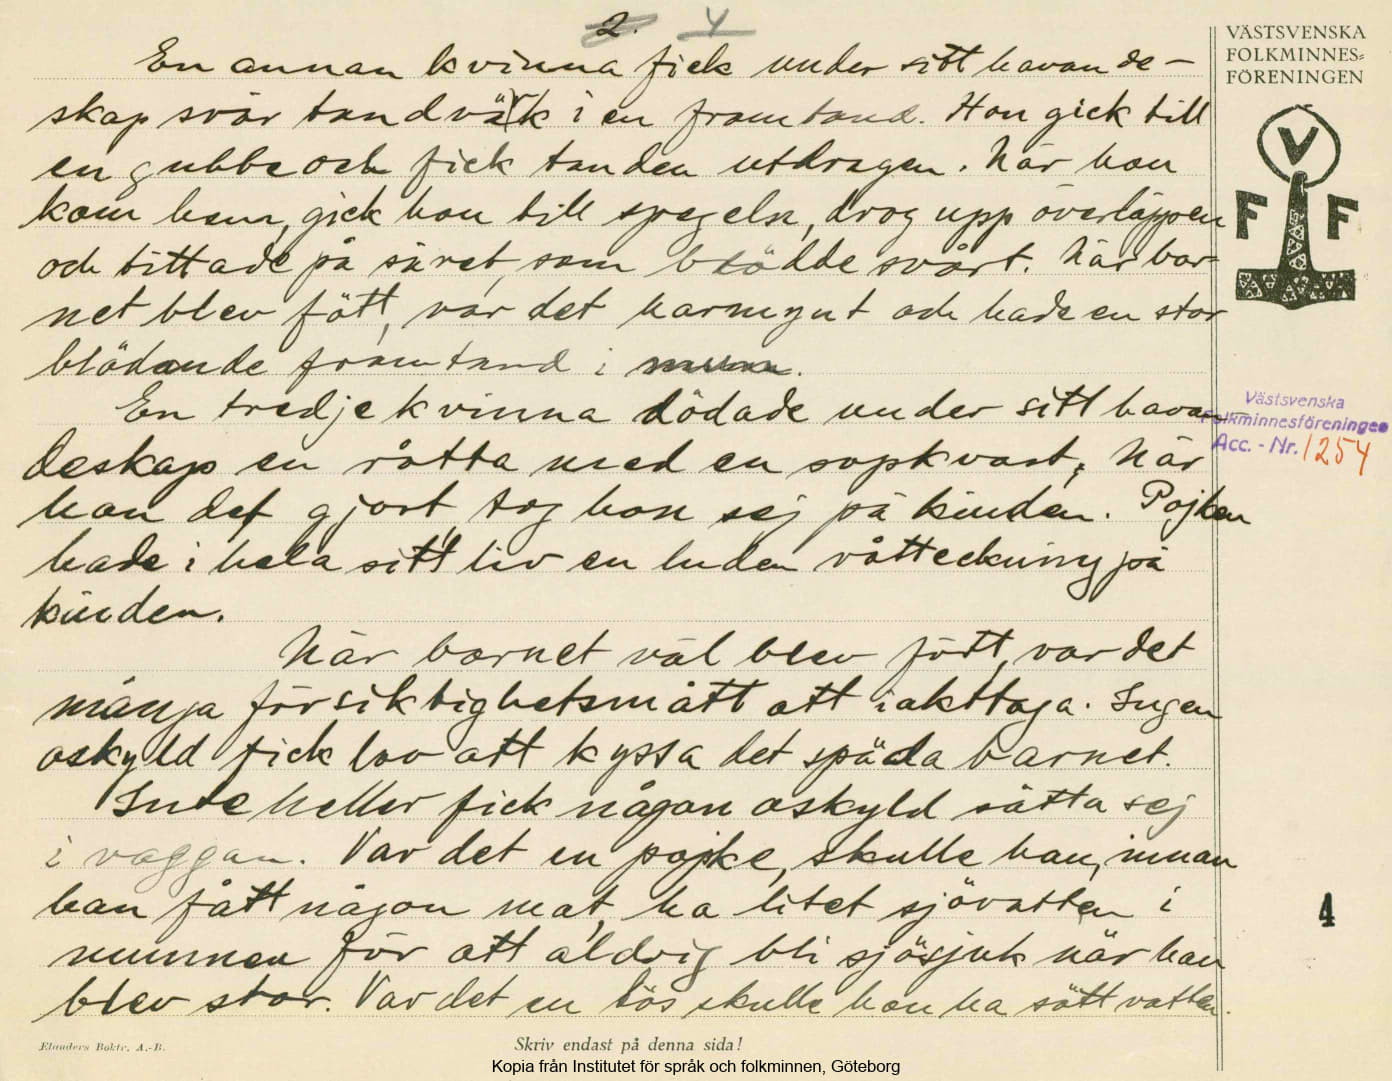 2. 4
VÄSTSVENSKA
FOLKMINNES=
FÖRENINGEN
V
F F
En annan kvinna fick under sitt havande-
skap svår tandvärk i en framtand. Hon gick till
en gubbe och fick tanden utdragen. När hon
kom hem, gick hon till spegeln, drog upp överläppen
och tittade på såret, som blödde svårt. När bar-
net blev fött, var det harmynt och hade en stor
blödande framtand i munn.
En tredje kvinna dödade under sitt havan-
deskap en råtta med en sopkvast. När
hon det gjort, tog hon sej på kinden. Pojken
hade i hela sitt liv en luden råtteckning på
kinden.
När barnet väl blev fött, var det
många försiktighetsmått att iakttaga. Ingen
oskyld fick lov att kyssa det späda barnet.
Inte heller fick någon oskyld sätta sej
i vaggan. Var det en pojke, skulle han, innan
han fått någon mat, ha litet sjövatten i
munnen för att aldrig bli sjösjuk när han
blev stor. Var det en tös skulle hon ha sött vatten.
Västsvenska
Folkminnesföreningen
Acc. - Nr. 1254
4
Elanders Boktr. A.-B.
Skriv endast på denna sida!
Kopia från Institutet för språk och folkminnen, Göteborg